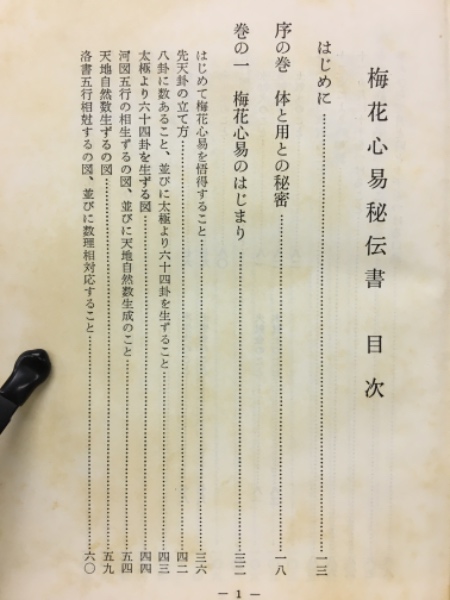 梅花心易秘伝書　目次
はじめに……一三
序の巻　体と用との秘密……一八
巻の一　梅花心易のはじまり……三二
はじめて梅花心易を悟得すること……三六
先天卦の立て方……四二
八卦に数あること、並びに太極より六十四卦を生ずること……四三
太極より六十四卦を生ずる図……四四
河図五行の相生ずるの図、並びに天地自然数生成のこと……五四
天地自然数生ずるの図……五九
洛書五行相尅するの図、並びに数理相対応すること……六〇
— 1 —